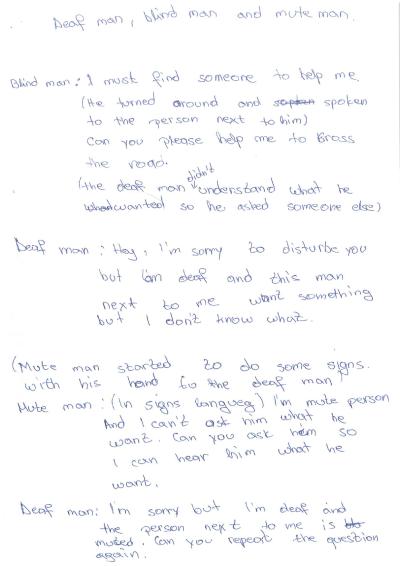 Deaf man, blind man and mute man.
Blind man: I must find someone to help me.
(He turned around and spoken
to the person next to him)
Can you please help me to Brass
the road.
(the deaf man didn't understand what he
wanted so he asked someone else)
Deaf man: Hey, I'm sorry to disturbe you
but I'm deaf and this man
next to me want something
but I don't know what.
(Mute man started to do some signs.
wirth his hand to the deaf man)
Mute man: (In signs langueg) I'm mute person
And I can't ask him what he
want. Can you ask him so
I can hear him what he
want.
Deaf man: I'm sorry but I'm deaf and
the person next to me is
muted. Can you repeat the question
again.